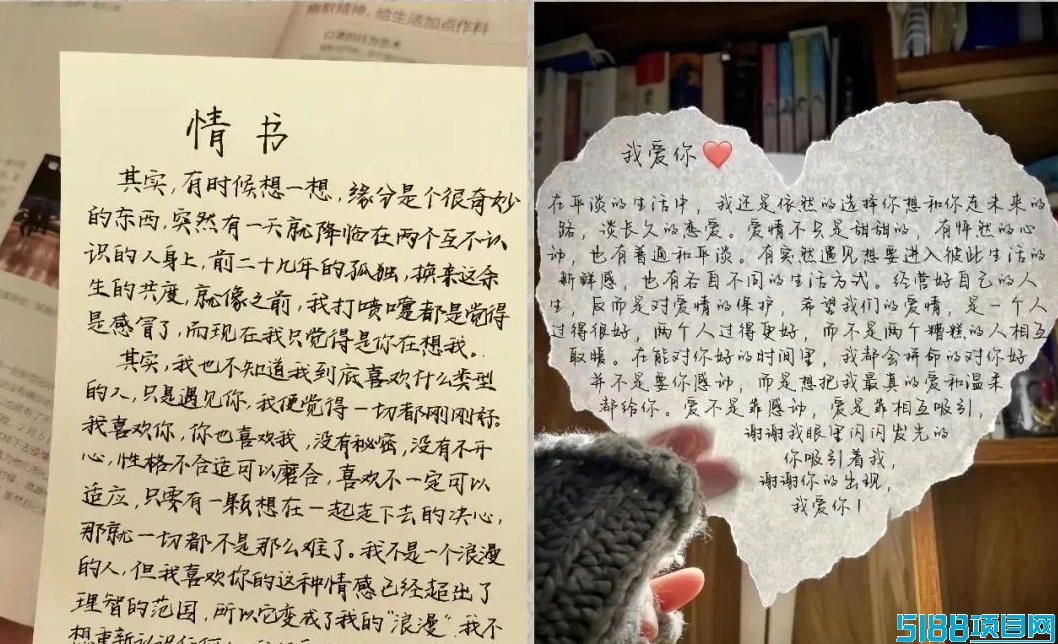 幽默精神，给生活加点作料
口误的行为艺术
情书
其实，有时候想一想，缘分是个很奇妙
的东西，突然有一天就降临在两个互不认
识的人身上，前二十九年的孤独，换来这余
生的共度，就像之前，我打喷嚏都是觉得
是感冒了，而现在我只觉得是你在想我。
其实，我也不知道我到底喜欢什么类型
的人，只是遇见你，我便觉得一切都刚刚好。
我喜欢你，你也喜欢我，没有秘密，没有不开
心，性格不合适可以磨合，喜欢不一定可以
适应，只要有一颗想在一起走下去的决心，
那就一切都不是那么难了。我不是一个浪漫
的人，但我喜欢你的这种情感已经超出了
理智的范围，所以它变成了我的“浪漫”，我不
想重新认识任何
我爱你❤️
在平淡的生活中，我还是依然的选择你想和你走未来的
路，谈长久的恋爱。爱情不只是甜甜的，有怦然的心
动，也有普通和平淡。有突然遇见想要进入彼此生活的
新鲜感，也有各自不同的生活方式。经营好自己的人
生，反而是对爱情的保护，希望我们的爱情，是一个人
过得很好，两个人过得更好，而不是两个糟糕的人相互
取暖。在能对你好的时间里，我都会拼命的对你好
并不是要你感动，而是想把我最真的爱和温柔
都给你。爱不是靠感动，爱是靠相互吸引，
谢谢我眼里闪闪发光的
你吸引着我，
谢谢你的出现，
我爱你！
5188项目网